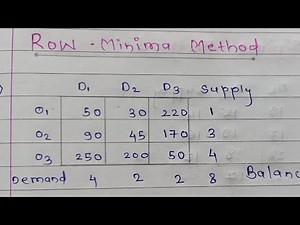 Row - Minima Method
D1 D2 D3 Supply
O1 50 30 220 1
O2 90 45 170 3
O3 250 200 50 4
Demand 4 2 2 8 Balanc